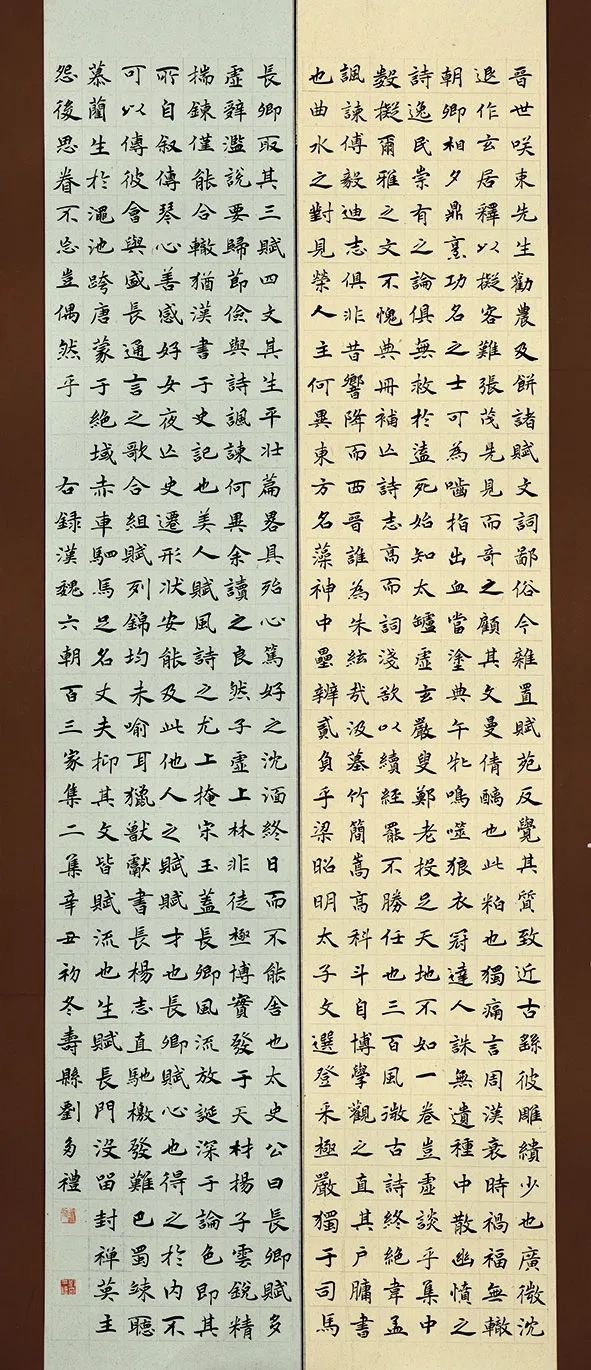 晉世咲東先生勸農及餅諸賦文詞鄙俗今雜置賦苑反覺其質致近古繇彼雕繢少也廣微沈
退作玄居釋以擬客難張茂先見而奇之顧其文曼倩醨也此粕也獨痛言周漢衰時禍福無轍
朝卿相夕鼎烹功名之士可為嚙指出血當塗典午牝鳴噬狼衣冠達人誅無遺種中散幽憤之
詩逸民崇有之論俱無救於溘死始知太罏虛玄嚴叟鄭老投足天地不如一卷豈虛談乎集中
數擬爾雅之文不愧典冊補亡詩志高而詞淺欲以續經罷不勝任也三百風微古詩終絕韋孟
諷諫傅毅迪志俱非昔響降而西晉誰為朱絃哉汲墓竹簡嵩高科斗自博學觀之直其戶牖書
也曲水之對見榮人主何異東方名藻神中壘辨貳負乎梁昭明太子文選登采極嚴獨于司馬
長卿取其三賦四文其生平壯篇畧具殆心篤好之沈湎終日而不能舍也太史公曰長卿賦多
虛辭濫說要歸節儉與詩諷諫何異余讀之良然子虛上林非徒極博實發于天材揚子雲銳精
揣鍊僅能合轍猶漢書于史記也美人賦風詩之尤上掩宋玉蓋長卿風流放誕深于論色即其
所自叙傳琴心善感好女夜亡史遷形狀安能及此他人之賦賦才也長卿賦心也得之於內不
可以傳彼會與盛長通言之歌合組賦列錦均未喻耳獵獸獻書長楊志直馳檄發難巴蜀竦聽
慕藺生於澠池跨唐蒙于絕域赤車駟馬足名丈夫抑其文皆賦流也生賦長門沒留封禪英主
怨後思眷不忘豈偶然乎 右錄漢魏六朝百三家集二集辛丑初冬壽縣劉多禮